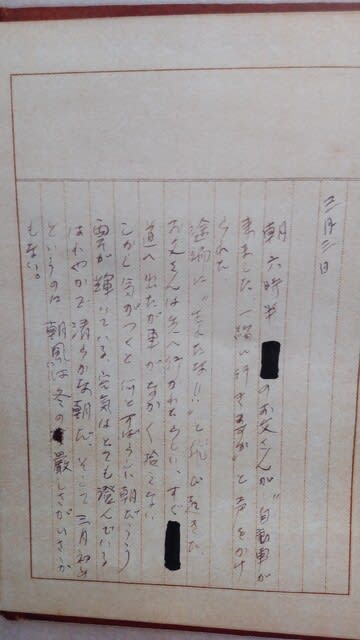 三月三日
朝 六時半 のお父さんが“自動車が
来ました 一緒に行きますか”と声をかけ
くれた
途端に“そんな!!”と飛び起きた
お父さんは先へ行かれたらしい、すぐ
道へ出たが車がなかなか拾えない
しかし気がつくと何とすばらしい朝だろう
雪が輝いている、空気はとても澄んでいる
はれやかで清らかな朝だ、そして三月初め
というのに 朝風は冬の厳しさがいささか
もない。